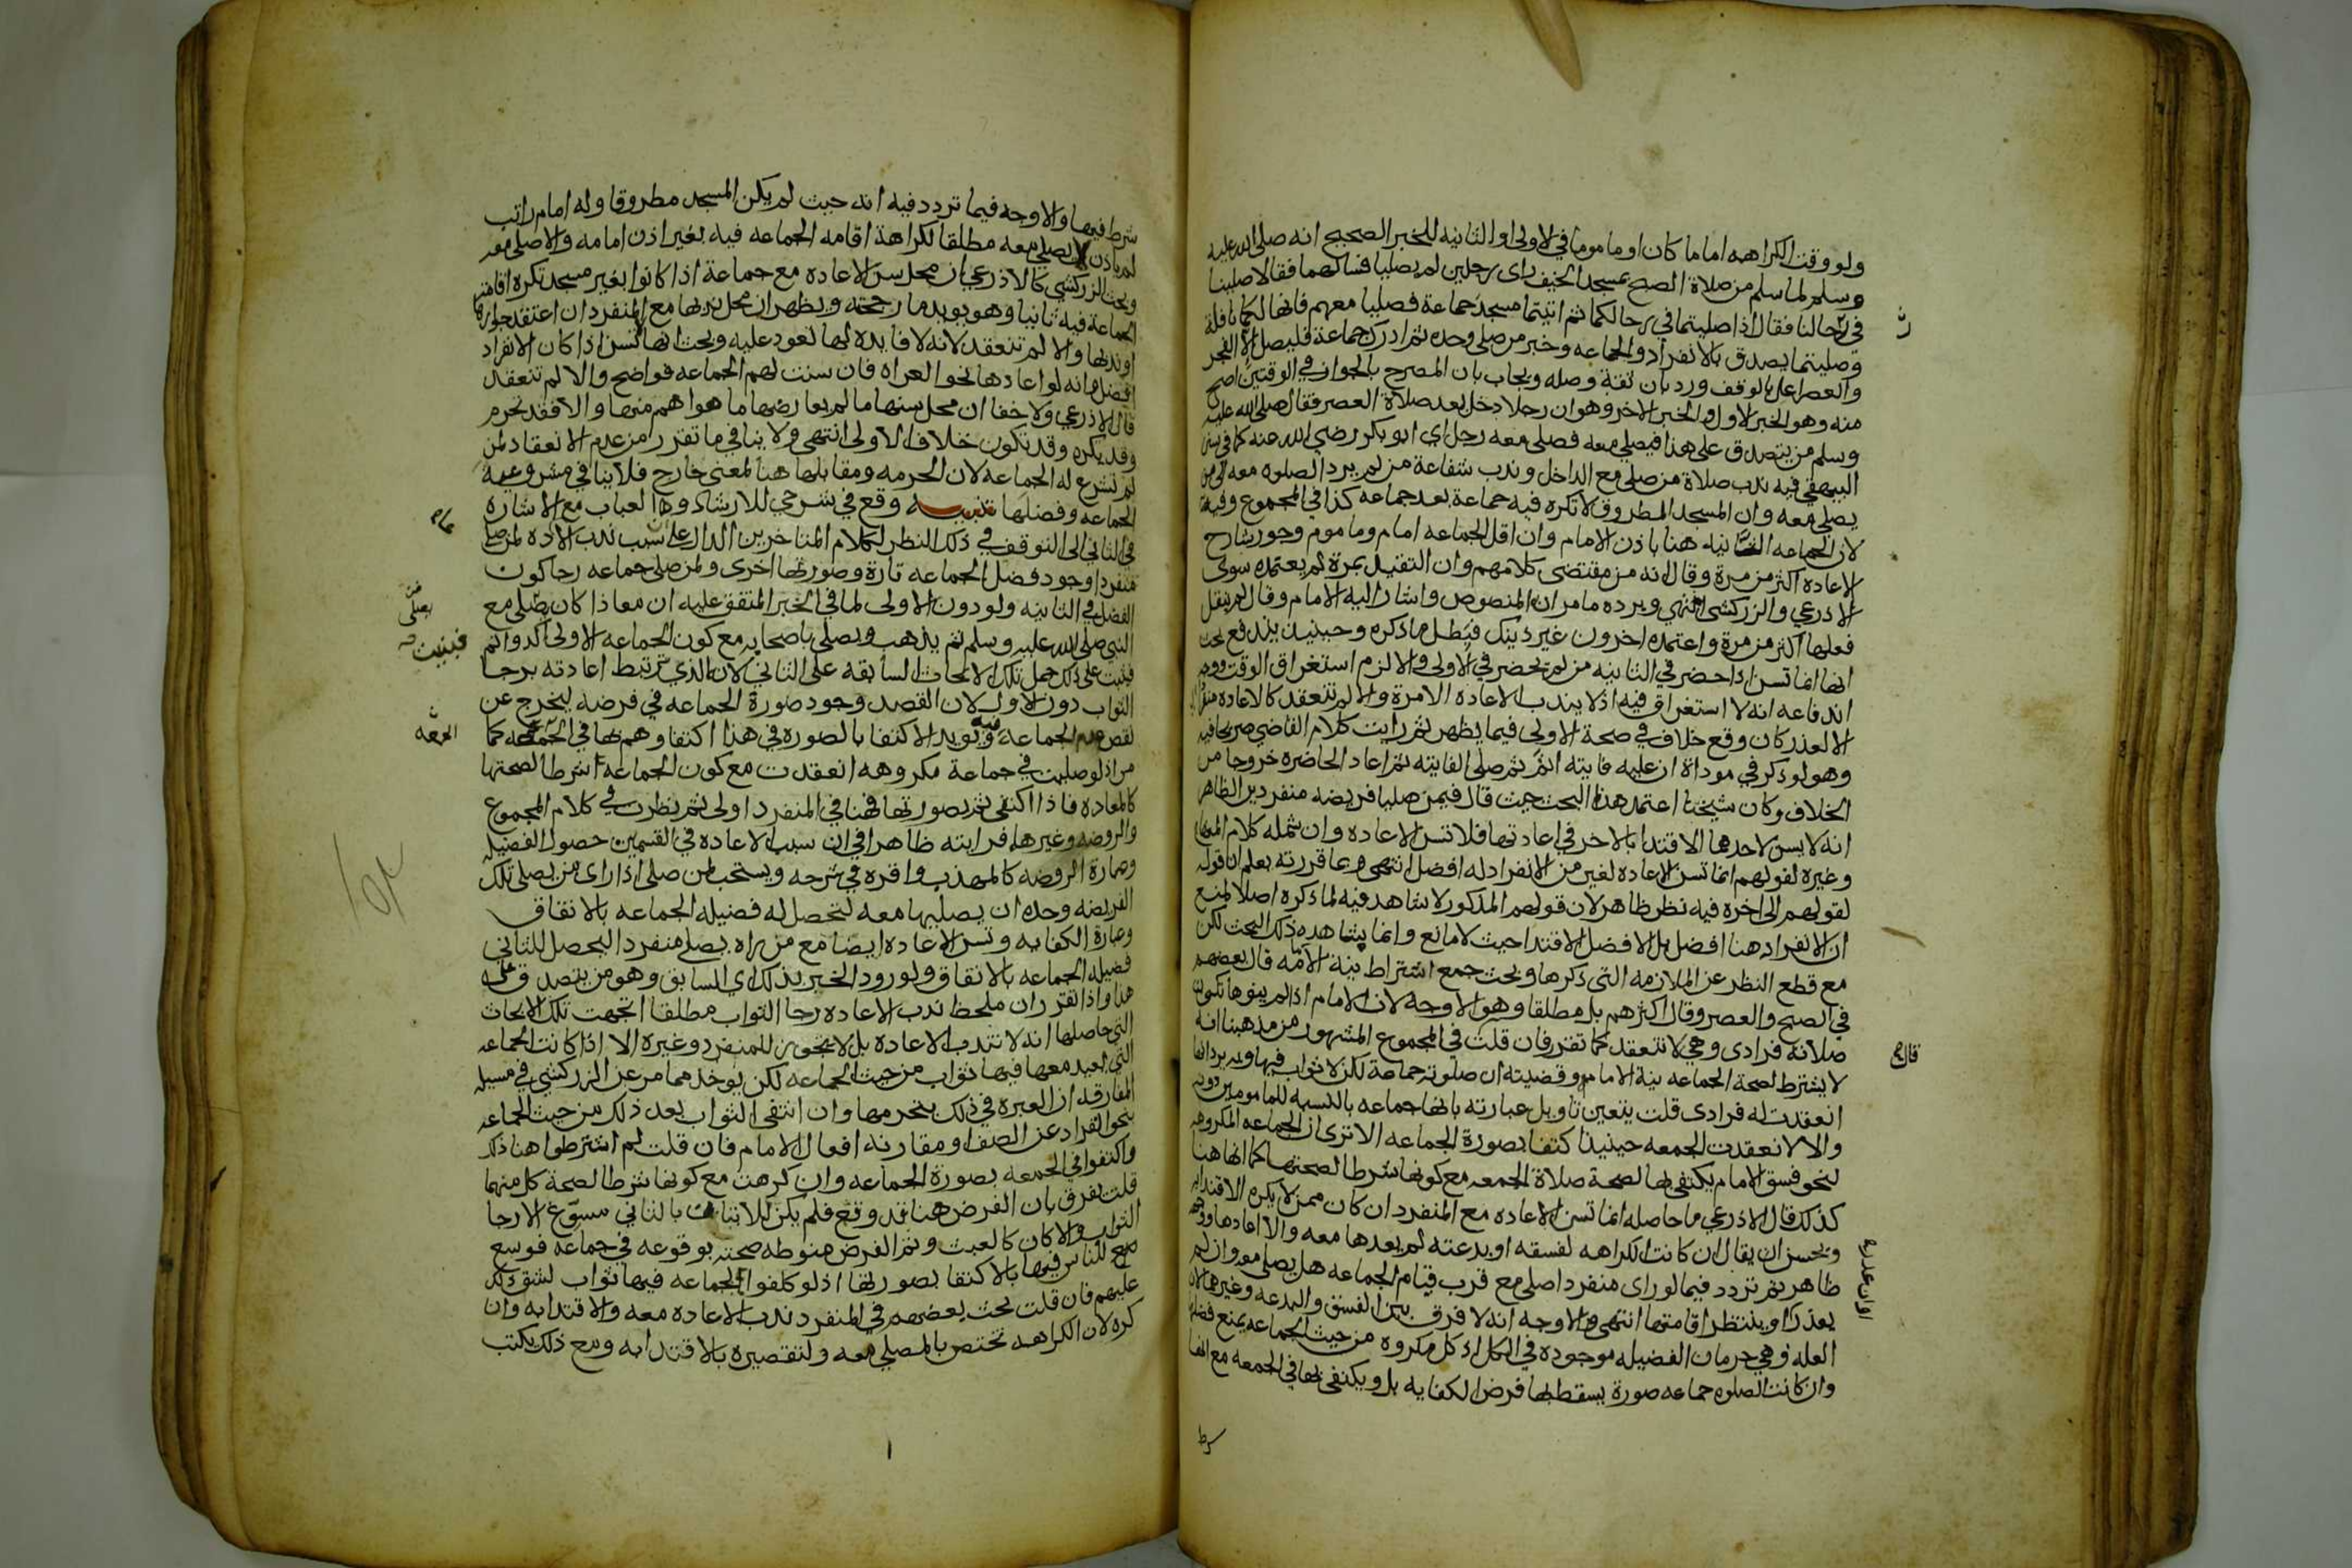 ولو وقت الكراهه اماما كان او ماموما في الاولى او الثانيه للخبر الصحيح انه صلى الله عليه
وسلم لما سلم من صلاة الصبح بمسجد الخيف راى رجلين لم يصليا فسالهما فقالا صلينا
في رحالنا فقال اذا صليتما في رحالكما ثم اتيتما مسجد جماعة فصليا معهم فانها لكما نافلة
وصليتما يصدق بالانفراد والجماعه وخبر من صلى وحده ثم ادرك جماعة فليصل الا الفجر
والعصر اعل بالوقف ورد بان ثقة وصله ويجاب بان المصرح بالجواز في الوقتين اصح
منه وهو الخبر الاول والخبر الاخر وهو ان رجلا دخل بعد صلاة العصر فقال صلى الله عليه
وسلم من يتصدق على هذا فيصلي معه فصلى معه رجل اي ابو بكر رضي الله عنه كما في سنن
البيهقي فيه ندب صلاة من صلى مع الداخل وندب شفاعة من لم يرد الصلوه معه الى من
يصلي معه وان المسجد المطروق لا تكره فيه جماعة بعد جماعه كذا في المجموع وفيه
لان الجماعه الثانيه هنا باذن الامام وان اقل الجماعه امام وماموم وجوز شارح
الاعاده اكثر من مرة وقال انه من مقتضى كلامهم وان التقييد بمرة لم يعتمده سوى
الاذرعي والزركشي انتهى ويرده ما مر ان المنصوص واشار اليه الامام وقال لم ينقل
فعلها اكثر من مرة واعتمده اخرون غير ذينك فبطل ما ذكره وحينيذ يندفع بحث
انها انما تسن اذا حضر في الثانيه من لم يحضر في الاولى والا لزم استغراق الوقت ووجه
اندفاعه انه لا استغراق فيه اذ لا يندب الاعاده الا مرة والا لم تنعقد كالاعاده منفردا
الا لعذر كان وقع خلاف في صحة الاولى فيما يظهر ثم رايت كلام القاضي صريحا فيه
وهو لو ذكر في موداة ان عليه فايته اتم ثم صلى الفايته ثم اعاد الحاضره خروجا من
الخلاف وكان شيخنا اعتمد هذا البحث حيث قال فيمن صليا فريضه منفردين الظاهر
انه لا يسن لاحدهما الاقتدا بالاخر في اعادتها فلا تسن الاعاده وان شمله كلام المنهاج
وغيره لقولهم انما تسن الاعاده لغير من الانفراد له افضل انتهى وبما قررته يعلم ان قوله
لقولهم الى اخره فيه نظر ظاهر لان قولهم المذكور لا شاهد فيه لما ذكره اصلا لمنع
ان الانفراد هنا افضل بل الافضل الاقتدا حيث لا مانع وانما يشاهده ذلك البحث لكن
مع قطع النظر عن الملازمه التي ذكرها وبحث جمع اشتراط نية الامامه قال بعضهم
في الصبح والعصر وقال اكثرهم بل مطلقا وهو الاوجه لان الامام اذا لم ينوها تكون
صلاته فرادى وهي لا تنعقد كما تقرر فان قلت في المجموع المشهور من مذهبنا انه
لا يشترط لصحة الجماعه نية الامام وقضيته ان صلوته جماعة لكن لا ثواب فيها
انعقدت له فرادى قلت يتعين تاويل عبارته بانها جماعه بالنسبه للمامومين دونه
والا لانعقدت الجمعه حينيذ اكتفا بصورة الجماعه الا ترى ان الجماعه المكروهه
لنحو فسق الامام يكتفى بها لصحة صلاة الجمعه مع كونها شرطا لصحتها كما انها هنا
كذلك قال الاذرعي ما حاصله انما تسن الاعاده مع المنفرد ان كان ممن لا يكره الاقتدا به
ويحسن ان يقال ان كانت الكراهه لفسقه او بدعته لم يعدها معه والا اعادها ووجهه
ظاهر ثم تردد فيما لو راى منفردا صلى مع قرب قيام الجماعه هل يصلي معه وان لم
يعذر او ينتظر اقامتها انتهى والاوجه انه لا فرق بين الفسق والبدعه وغيرهما لان
العله وهي حرمان الفضيله موجوده في الكل اذ كل مكروه من حيث الجماعه يمنع فضلها
وان كانت الصلوه جماعه صورة يسقط بها فرض الكفايه بل ويكتفى بها في الجمعه مع انها
شرط
شرط فيها والاوجه فيما تردد فيه انه حيث لم يكن المسجد مطروقا وله امام راتب
لم ياذن لا يصلي معه مطلقا لكراهة اقامه الجماعه فيه بغير اذن امامه والا صلى معه
وبحث الزركشي كالاذرعي ان محل سن الاعاده مع جماعة اذا كانوا بغير مسجد تكره اقامة
الجماعة فيه ثانيا وهو يويد ما رجحته ويظهر ان محل ندبها مع المنفرد ان اعتقد جوازها
او ندبها والا لم تنعقد لانه لا فايده لها تعود عليه وبحث انها تسن اذا كان الانفراد
افضل وانه لو اعادها نحو العراه فان سنت لهم الجماعه فواضح والا لم تنعقد
قال الاذرعي ولا خفا ان محل سنها ما لم يعارضها ما هو اهم منها والا فقد تحرم
وقد يكره وقد تكون خلاف الاولى انتهى ولا ينافي ما تقرر من عدم الانعقاد لمن
لم تشرع له الجماعه لان الحرمه ومقابلها هنا لمعنى خارج فلا ينافي مشروعية
الجماعه وفضلها تنبيه وقع في شرحي للارشاد والعباب مع الاشاره
في الثاني الى التوقف في ذلك النظر لكلام المتاخرين الدال على سبب ندب الاعاده لمن صلى
منفردا وجود فضل الجماعه تارة وصورتها اخرى ولمن صلى جماعه رجا كون
الفضل في الثانيه ولو دون الاولى لما في الخبر المتفق عليه ان معاذا كان يصلي مع
النبي صلى الله عليه وسلم ثم يذهب ويصلي باصحابه مع كون الجماعه الاولى اكد واتم
فبنيت على ذلك حمل تلك الابحاث السابقه على الثاني لان الذي ترتبط اعادته برجا
الثواب دون الاول لان القصد وجود صورة الجماعه في فرضه ليخرج عن
نقص عدم الجماعه فيه ويويد الاكتفا بالصوره في هذا اكتفاوهم بها في الجمعه كما
مر اذ لو صليت في جماعة مكروهه انعقدت مع كون الجماعه شرطا لصحتها
كالمعاده فاذا اكتفي ثم بصورتها فهنا في المنفرد اولى ثم نظرت في كلام المجموع
والروضه وغيرها فرايته ظاهرا في ان سبب الاعاده في القسمين حصول الفضيله
وعبارة الروضه كالمهذب واقره في شرحه ويستحب لمن صلى اذا راى من يصلي تلك
الفريضه وحده ان يصليها معه لتحصل له فضيله الجماعه بالاتفاق
وعبارة الكفايه وتسن الاعاده ايضا مع من راه يصلي منفردا ليحصل للثاني
فضيله الجماعه بالاتفاق ولورود الخبر بذلك اي السابق وهو من يتصدق على
هذا واذا تقرر ان ملحظ ندب الاعاده رجا الثواب مطلقا اتجهت تلك الابحاث
التي حاصلها انه لا تندب الاعاده بل لا تجوز للمنفرد وغيره الا اذا كانت الجماعه
التي يعيد معها فيها ثواب من حيث الجماعه لكن يوخذ مما مر عن الزركشي في مسيله
المفارقه ان العبره في ذلك بتحرمها وان انتفى الثواب بعد ذلك من حيث الجماعه
بنحو انفراد عن الصف او مقارنة افعال الامام فان قلت لم اشترطوا هنا ذلك
واكتفوا في الجمعه بصورة الجماعه وان كرهت مع كونها شرطا لصحة كل منهما
قلت يفرق بان الفرض هنا قد وقع فلم يكن للاتيان بالثاني مسوغ الا رجا
الثواب والا كان كالعبث وثم الفرض منوطه صحته بوقوعه في جماعه فوسع
للناس فيها بالاكتفا بصورتها اذ لو كلفوا بجماعه فيها ثواب لشق ذلك
عليهم فان قلت بحث بعضهم في المنفرد ندب الاعاده معه والاقتدا به وان
كره لان الكراهه تختص بالمصلي معه ولتقصيره بالاقتدا به ومع ذلك يكتب